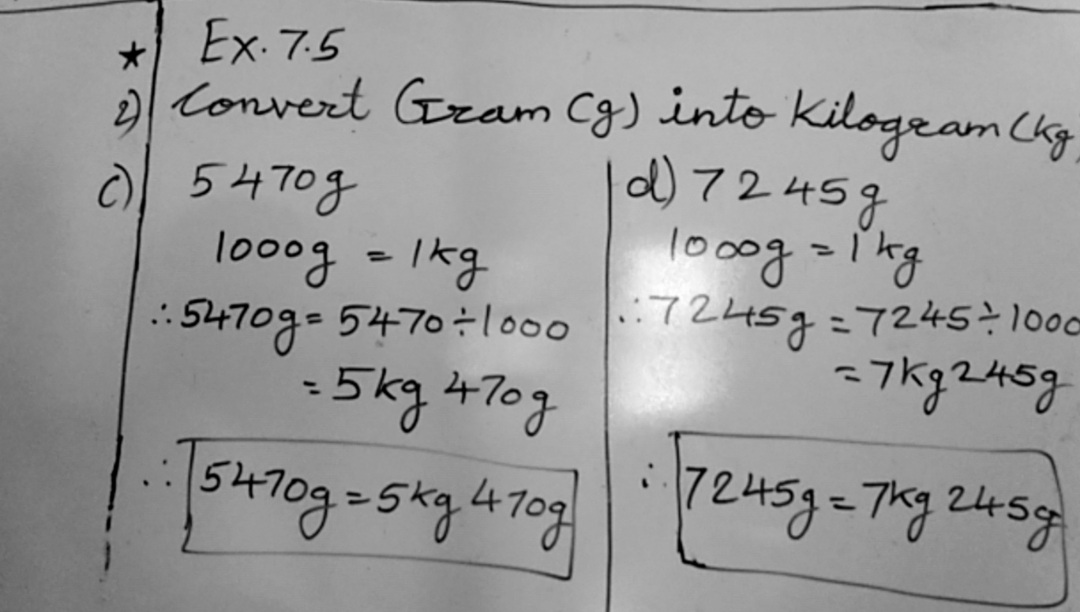 ★ Ex. 7.5
2) Convert Gram (g) into Kilogram (kg)
c) 5470g
1000g = 1kg
∴ 5470g = 5470 ÷ 1000
= 5kg 470g
∴ 5470g = 5kg 470g
d) 7245g
1000g = 1kg
∴ 7245g = 7245 ÷ 1000
= 7kg 245g
∴ 7245g = 7kg 245g